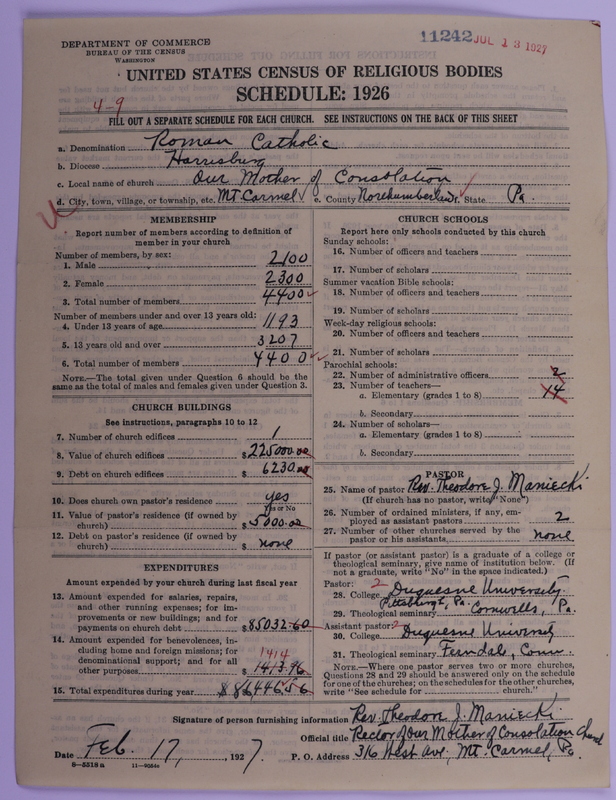 DEPARTMENT OF COMMERCE
BUREAU OF THE CENSUS
WASHINGTON
11242 JUL 13 1927
UNITED STATES CENSUS OF RELIGIOUS BODIES
SCHEDULE: 1926
4-9
FILL OUT A SEPARATE SCHEDULE FOR EACH CHURCH. SEE INSTRUCTIONS ON THE BACK OF THIS SHEET
a. Denomination Roman Catholic
b. Diocese Harrisburg
c. Local name of church Our Mother of Consolation
d. City, town, village, or township, etc. Mt Carmel e. County Northumberland f. State Pa.
MEMBERSHIP
Report number of members according to definition of
member in your church
Number of members, by sex:
1. Male 2100
2. Female 2300
3. Total number of members 4400
Number of members under and over 13 years old:
4. Under 13 years of age 1193
5. 13 years old and over 3207
6. Total number of members 4400
NOTE.—The total given under Question 6 should be the
same as the total of males and females given under Question 3.
CHURCH BUILDINGS
See instructions, paragraphs 10 to 12
7. Number of church edifices 1
8. Value of church edifices $225000.00
9. Debt on church edifices $6230.00
10. Does church own pastor's residence yes
Yes or No
11. Value of pastor's residence (if owned by
church) $5000.00
12. Debt on pastor's residence (if owned by
church) $none
EXPENDITURES
Amount expended by your church during last fiscal year
13. Amount expended for salaries, repairs,
and other running expenses; for im-
provements or new buildings; and for
payments on church debt $85032.60
14. Amount expended for benevolences, in-
cluding home and foreign missions; for
denominational support; and for all
other purposes $1413.96
1414
15. Total expenditures during year $86446.56
CHURCH SCHOOLS
Report here only schools conducted by this church
Sunday schools:
16. Number of officers and teachers
17. Number of scholars
Summer vacation Bible schools:
18. Number of officers and teachers
19. Number of scholars
Week-day religious schools:
20. Number of officers and teachers
21. Number of scholars
Parochial schools:
22. Number of administrative officers 2
23. Number of teachers—
a. Elementary (grades 1 to 8) 14
b. Secondary
24. Number of scholars—
a. Elementary (grades 1 to 8)
b. Secondary
PASTOR
25. Name of pastor Rev. Theodore J. Maniecki
(If church has no pastor, write "None")
26. Number of ordained ministers, if any, em-
ployed as assistant pastors 2
27. Number of other churches served by the
pastor or his assistants none
If pastor (or assistant pastor) is a graduate of a college or
theological seminary, give name of institution below. (If
not a graduate, write "No" in the space indicated.)
Pastor: 2
28. College Duquesne University
Pittsburgh, Pa.
29. Theological seminary Cornwells, Pa.
Assistant pastor: 2
30. College Duquesne University
31. Theological seminary Ferndale, Conn.
NOTE.—Where one pastor serves two or more churches,
Questions 28 and 29 should be answered only on the schedule
for one of the churches; on the schedules for the other churches,
write "See schedule for church."
Signature of person furnishing information Rev. Theodore J. Maniecki
Official title Rector of Our Mother of Consolation Church
Date Feb. 17, 1927. P. O. Address 316 West Ave., Mt. Carmel, Pa.
8-5518 a